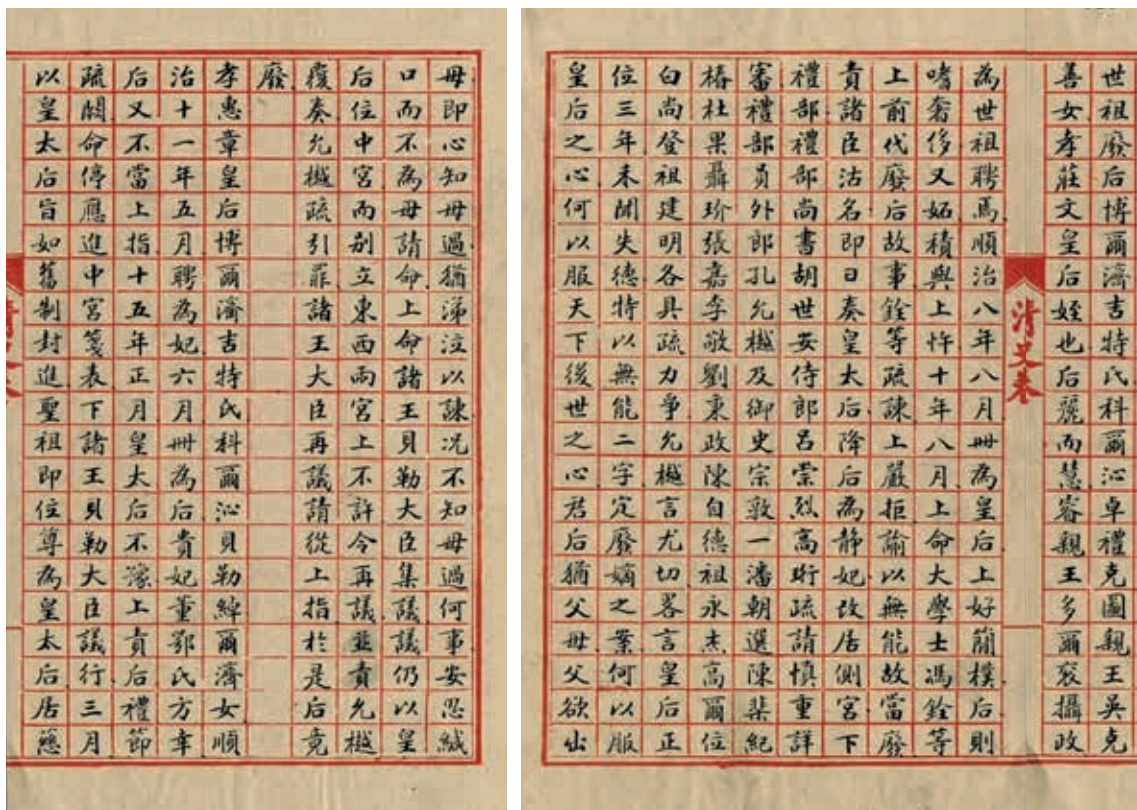 世祖廢后博爾濟吉特氏科爾沁卓禮克圖親王吳克
善女孝莊文皇后姪也后麗而慧睿親王多爾袞攝政
清史卷
為世祖聘焉順治八年八月冊為皇后上好簡樸后則
嗜奢侈又妬積與上忤十年八月上命大學士馮銓等
上前代廢后故事銓等疏諫上嚴拒諭以無能故當廢
責諸臣沽名即日奏皇太后降后為靜妃改居側宮下
禮部禮部尚書胡世安侍郎呂崇烈高珩疏請慎重詳
審禮部員外郎孔允樾及御史宗敦一潘朝選陳棐紀
椿杜果聶玠張嘉李敬劉秉政陳自德祖永杰高爾位
白尚登祖建明各具疏力爭允樾言尤切畧言皇后正
位三年未聞失德特以無能二字定廢嫡之案何以服
皇后之心何以服天下後世之心君后猶父母父欲出
母即心知母過猶涕泣以諫況不知母過何事安忍緘
口而不為母請命上命諸王貝勒大臣集議議仍以皇
后位中宮而别立東西兩宮上不許令再議並責允樾
覆奏允樾疏引罪諸王大臣再議請從上指於是后竟
廢
孝惠章皇后博爾濟吉特氏科爾沁貝勒綽爾濟女順
治十一年五月聘為妃六月冊為后貴妃董鄂氏方幸
后又不當上指十五年正月皇太后不豫上責后禮節
疏闕命停應進中宮箋表下諸王貝勒大臣議行三月
以皇太后旨如舊制封進聖祖即位尊為皇太后居慈